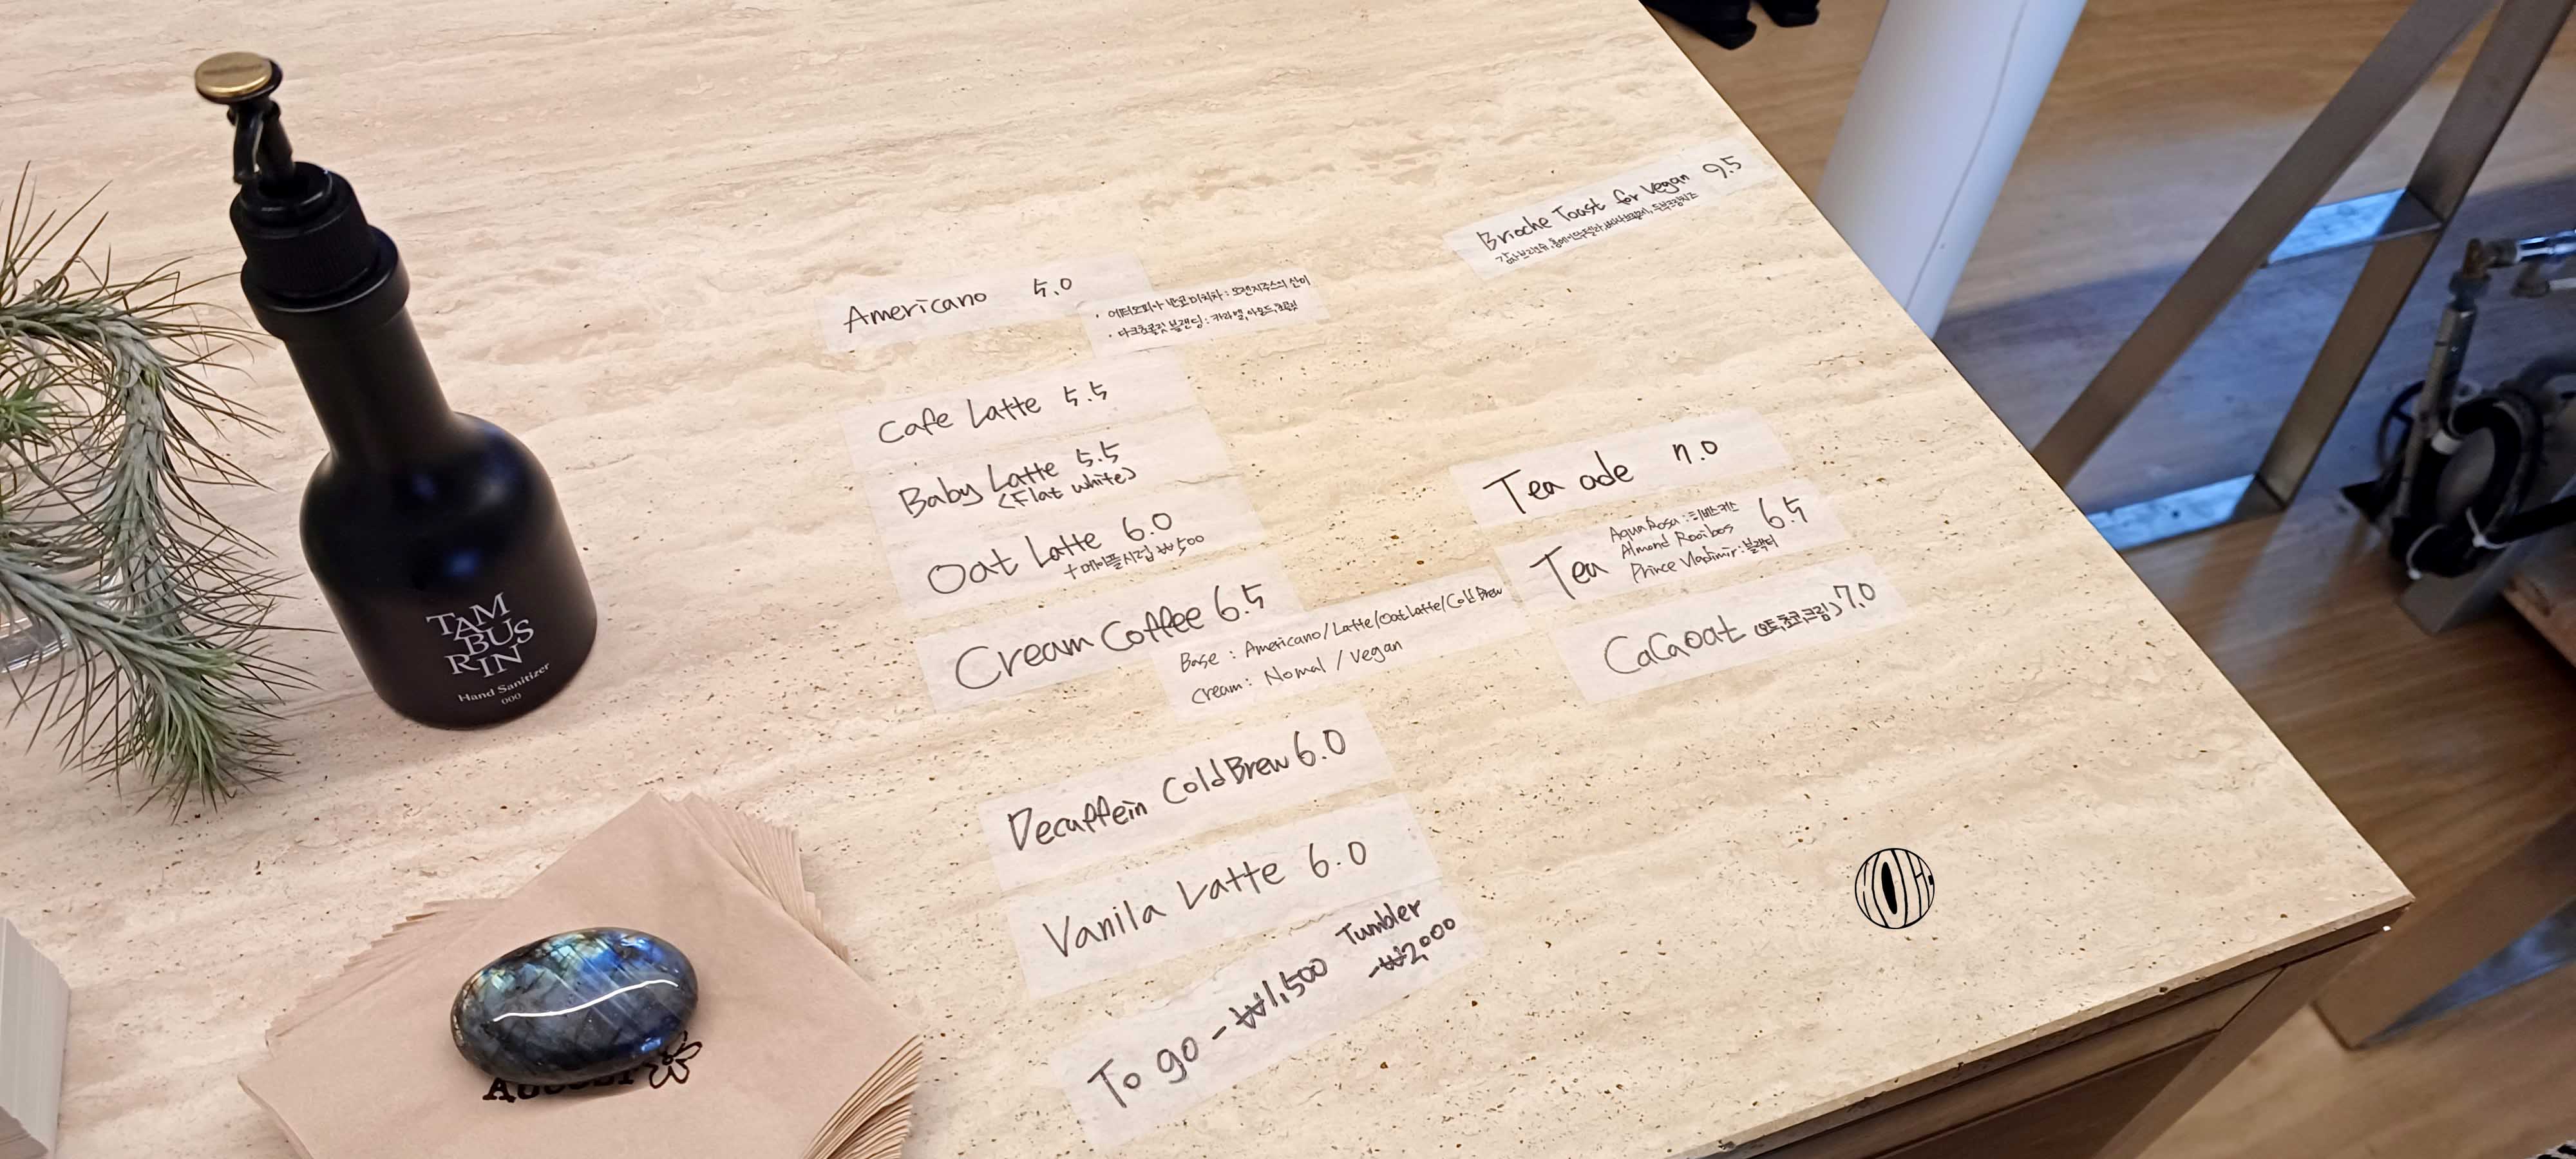 TAM
BUS
RIN
Hand Sanitizer
000
Americano 5.0
· 에티오피아 반코미치차 : 오렌지주스의 산미
· 다크초콜릿 블랜딩 : 카라멜, 아몬드, 초콜릿
Cafe Latte 5.5
Baby Latte 5.5
(Flat white)
Oat Latte 6.0
+메이플시럽 ₩500
Cream Coffee 6.5
Base : Americano/Latte/Oat Latte/Cold Brew
Cream : Nomal / Vegan
Decaffein Cold Brew 6.0
Vanila Latte 6.0
To go -₩1,500
Tumbler
-₩2,000
Brioche Toast for Vegan 9.5
Tea ade 7.0
Tea 6.5
Aqua Rosa : 히비스커스
Almond Rooibos
Prince Vladimir : 블랙티
CaCaoat (오트,초코,크림) 7.0